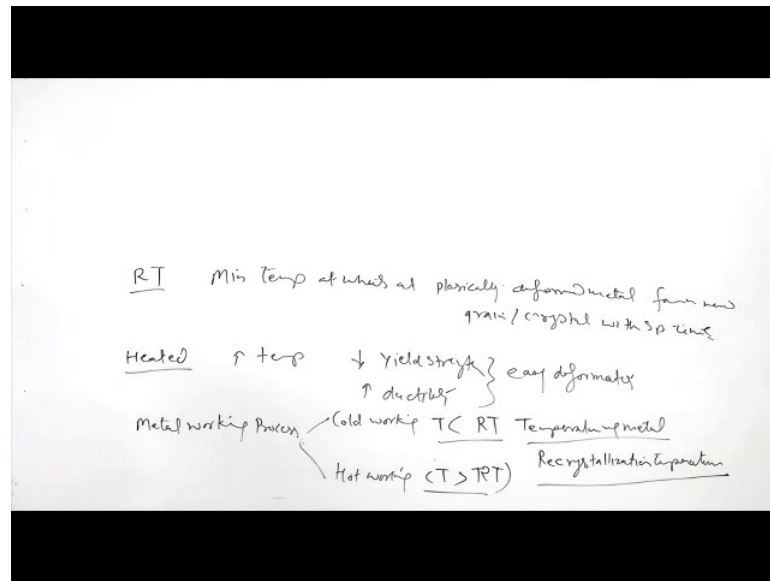 RT Min Temp at which at plasically deformed metal forms new
grain/crystal with sp time
Heated ↑ temp ↓ Yield strength } easy deformation
↑ ductility
Metal working Process Cold working T < RT Temperature of metal
Hot working (T > RT) Recrystallization temperature